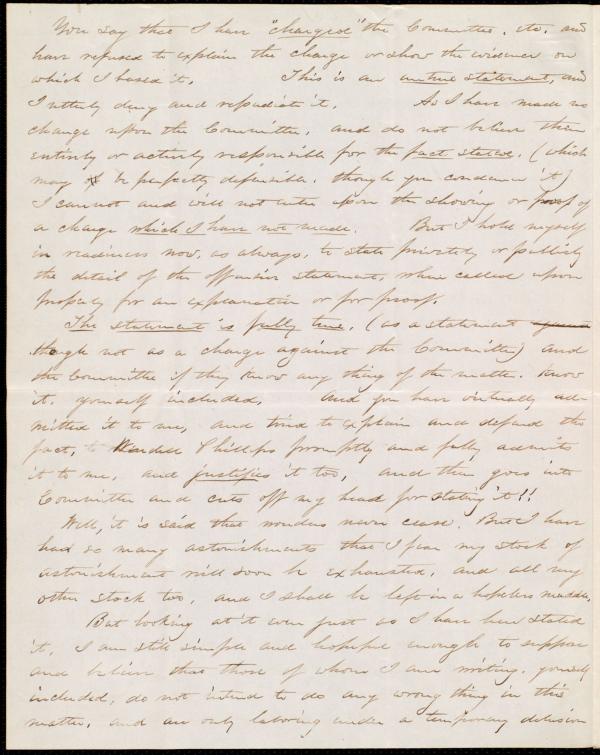 You say that I have "charged" the Committee, etc. and
have refused to explain the charge or show the evidence on
which I based it. This is an untrue statement, and
I utterly deny and repudiate it. As I have made no
charge upon the Committee, and do not believe them
entirely or actively responsible for the fact stated, (which
may be perfectly defensible, though you condemn it)
I cannot and will not enter upon the showing or proof of
a charge which I have not made. But I hold myself
in readiness now, as always, to state privately or publicly
the detail of the offensive statement, when called upon
properly for an explanation or for proof.
The statement is fully true, (as a statement
though not as a charge against the Committee) and
the Committee if they know any thing of the matter, know
it, yourself included, and you have virtually ad-
mitted it to me, and tried to explain and defend the
fact, Wendell Phillips promptly and fully admits
it to me, and justifies it too, and then goes into
Committee and cuts off my head for stating it!!
Well, it is said that wonders never cease. But I have
had so many astonishments that I fear my stock of
astonishment will soon be exhausted, and all my
other stock too, and I shall be left in a hopeless
But looking at it even just as I have here stated
it, I am still simple and hopeful enough to suppose
and believe that those of whom I am writing, yourself
included, do not intend to do any wrong thing in this
matter, and are only laboring under a temporary delusion